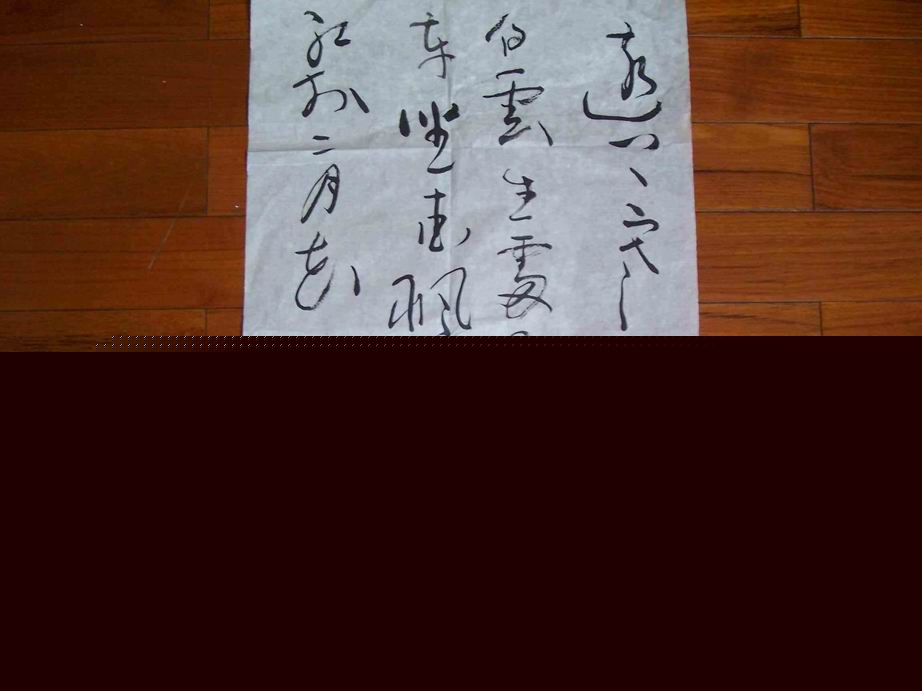 遠上寒
白雲生處
車坐愛楓
紅於二月花